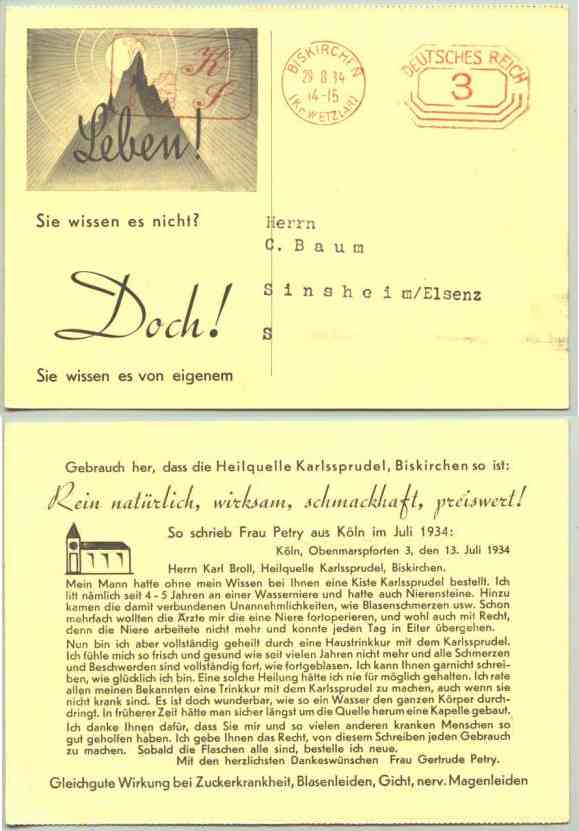 K
S
Leben!
BISKIRCHEN
29.8.34
14-15
DEUTSCHES REICH
3
Sie wissen es nicht?
Herrn
C. Baum
Sinsheim/Elsenz
S
Doch!
Sie wissen es von eigenem
Gebrauch her, dass die Heilquelle Karlssprudel, Biskirchen so ist:
Rein natürlich, wirksam, schmackhaft, preiswert!
So schrieb Frau Petry aus Köln im Juli 1934:
Köln, Obenmarspforten 3, den 13. Juli 1934
Herrn Karl Broll, Heilquelle Karlssprudel, Biskirchen.
Mein Mann hatte ohne mein Wissen bei Ihnen eine Kiste Karlssprudel bestellt. Ich
litt nämlich seit 4-5 Jahren an einer Wasserniere und hatte auch Nierensteine. Hinzu
kamen die damit verbundenen Unannehmlichkeiten, wie Blasenschmerzen usw. Schon
mehrfach wollten die Ärzte mir die eine Niere fortoperieren, und wohl auch mit Recht,
denn die Niere arbeitete nicht mehr und konnte jeden Tag in Eiter übergehen.
Nun bin ich aber vollständig geheilt durch eine Haustrinkkur mit dem Karlssprudel.
Ich fühle mich so frisch und gesund wie seit vielen Jahren nicht mehr und alle Schmerzen
und Beschwerden sind vollständig fort, wie fortgeblasen. Ich kann Ihnen garnicht schrei-
ben, wie glücklich ich bin. Eine solche Heilung hätte ich nie für möglich gehalten. Ich rate
allen meinen Bekannten eine Trinkkur mit dem Karlssprudel zu machen, auch wenn sie
nicht krank sind. Es ist doch wunderbar, wie so ein Wasser den ganzen Körper durch-
dringt. In früherer Zeit hätte man sicher längst um die Quelle herum eine Kapelle gebaut.
Ich danke Ihnen dafür, dass Sie mir und so vielen anderen kranken Menschen so
gut geholfen haben. Ich gebe Ihnen das Recht, von diesem Schreiben jeden Gebrauch
zu machen. Sobald die Flaschen alle sind, bestelle ich neue.
Mit den herzlichsten Dankeswünschen Frau Gertrude Petry.
Gleichgute Wirkung bei Zuckerkrankheit, Blasenleiden, Gicht, nerv. Magenleiden